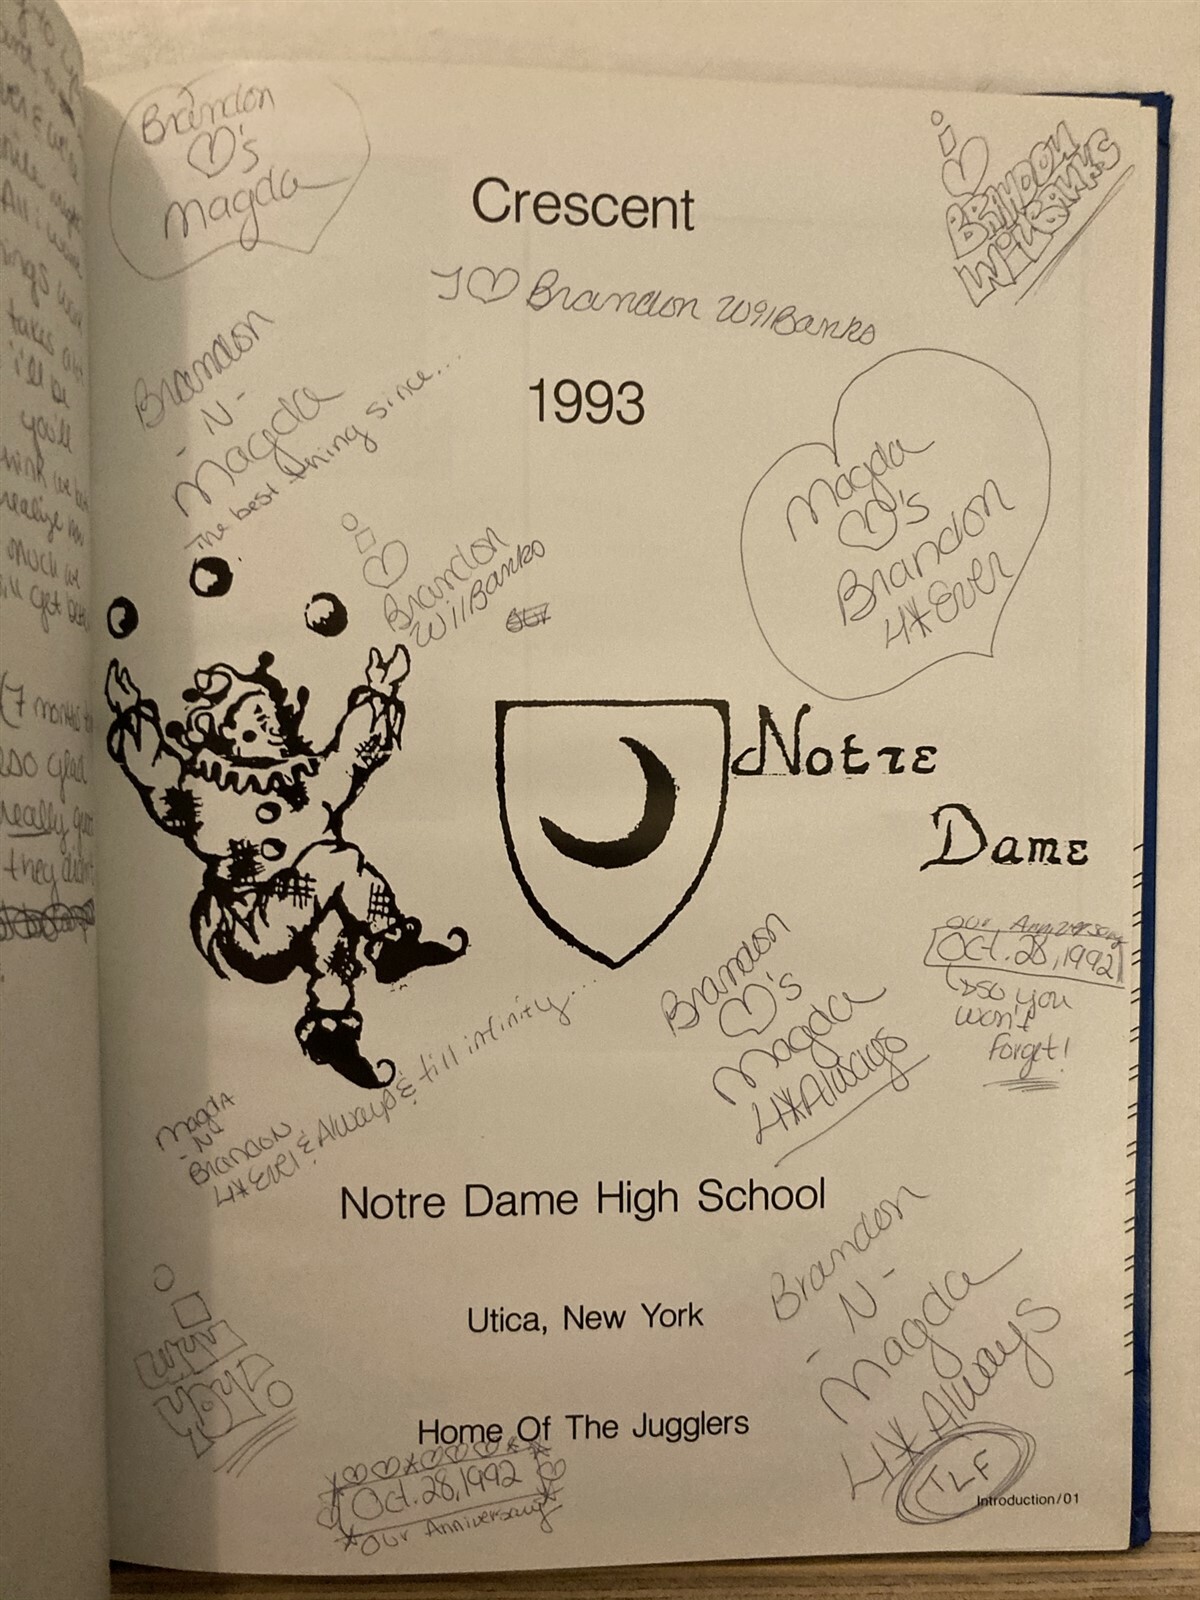 Brandon
♡'s
Magda
Crescent
i
♡
BRANDON
WILBANKS
I ♡ Brandon WilBanks
1993
Brandon
-N-
Magda
The best thing since...
Magda
♡'s
Brandon
4*Ever
i
♡
Brandon
WilBanks
Notre
Dame
Brandon
♡'s
Magda
4*Always
Our Anniversary
Oct. 28, 1992
so you
won't
forget!
Magda
-N-
Brandon
4*Ever & Always & till infinity...
Notre Dame High School
Utica, New York
Home Of The Jugglers
Brandon
-N-
Magda
4*Always
TLF
Oct. 28, 1992
*Our Anniversary*
Introduction/01
takes
i'll be
you'll
realize
much we
(7 months
so glad
really
they